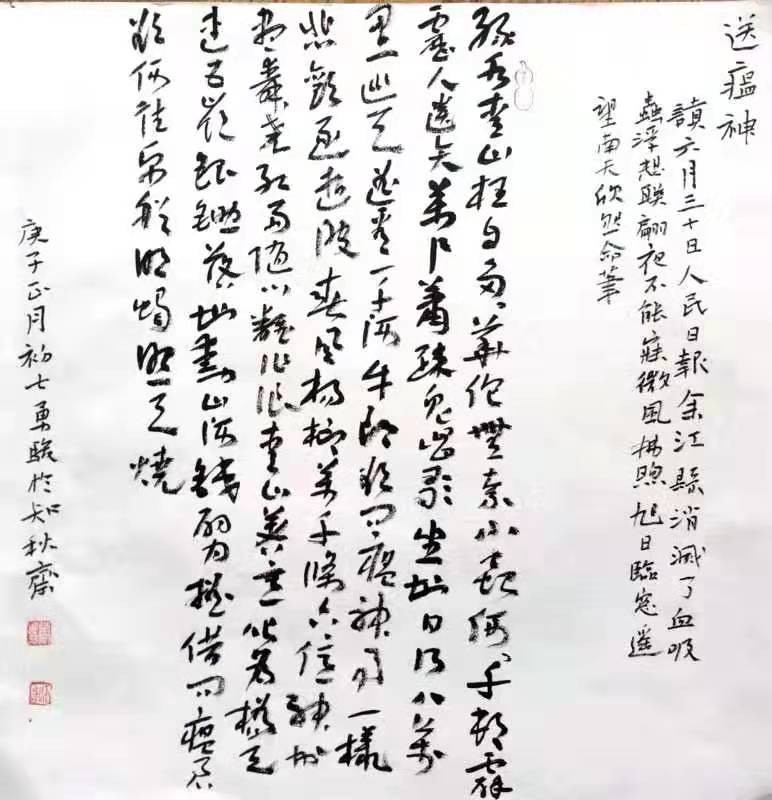 送瘟神
讀六月三十日人民日報余江縣消滅了血吸
蟲浮想聯翩夜不能寐微風拂煦旭日臨窗遥
望南天欣然命筆
綠水青山枉自多華佗無奈小蟲何千村薜
荔人遺矢萬戶蕭疏鬼唱歌坐地日行八萬
里巡天遥看一千河牛郎欲問瘟神事一樣
悲歡逐逝波春風楊柳萬千條六億神州
盡舜堯紅雨隨心翻作浪青山著意化為橋天
連五嶺銀鋤落地動山河鐵臂搖借問瘟君
欲何往紙船明燭照天燒
庚子正月初七勇駿於知秋齋